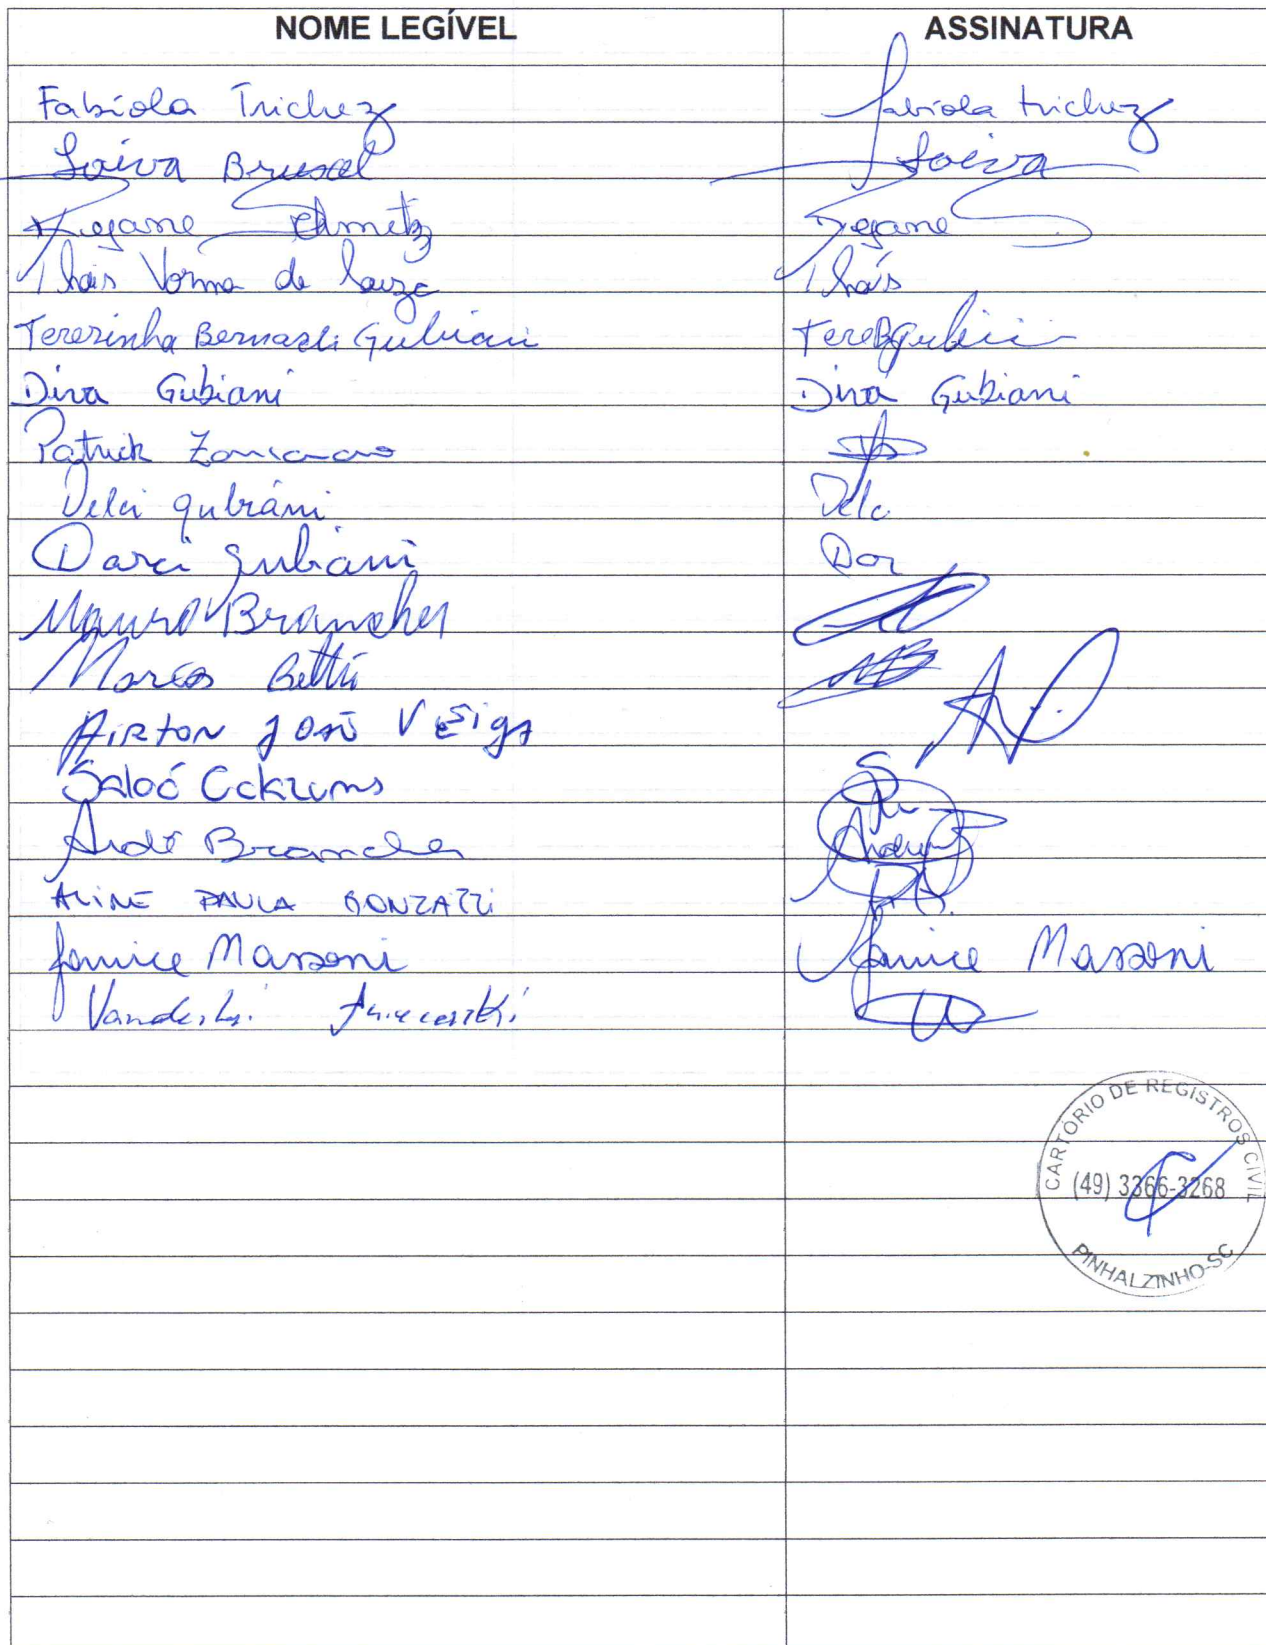 NOME LEGÍVEL ASSINATURA
Fabíola Trichez fabiola trichez
Loiva Loiva
Rejane Schmitz Rejane
Thais Vorma de Souza Thaís
Terezinha Bernardi Gubiani
Diva Gubiani Diva Gubiani
Patrick
Delci gubiani Delc
Darci gubiani Dar
Mauro Brancher
Marcos Bettú MB
AIRTON JOSÉ VEIGA
Saloé
André Brancher
ALINE PAULA BONZATTI
Janice Massoni Janice Massoni
CARTÓRIO DE REGISTROS CIVIL
(49) 3366-3268
PINHALZINHO-SC